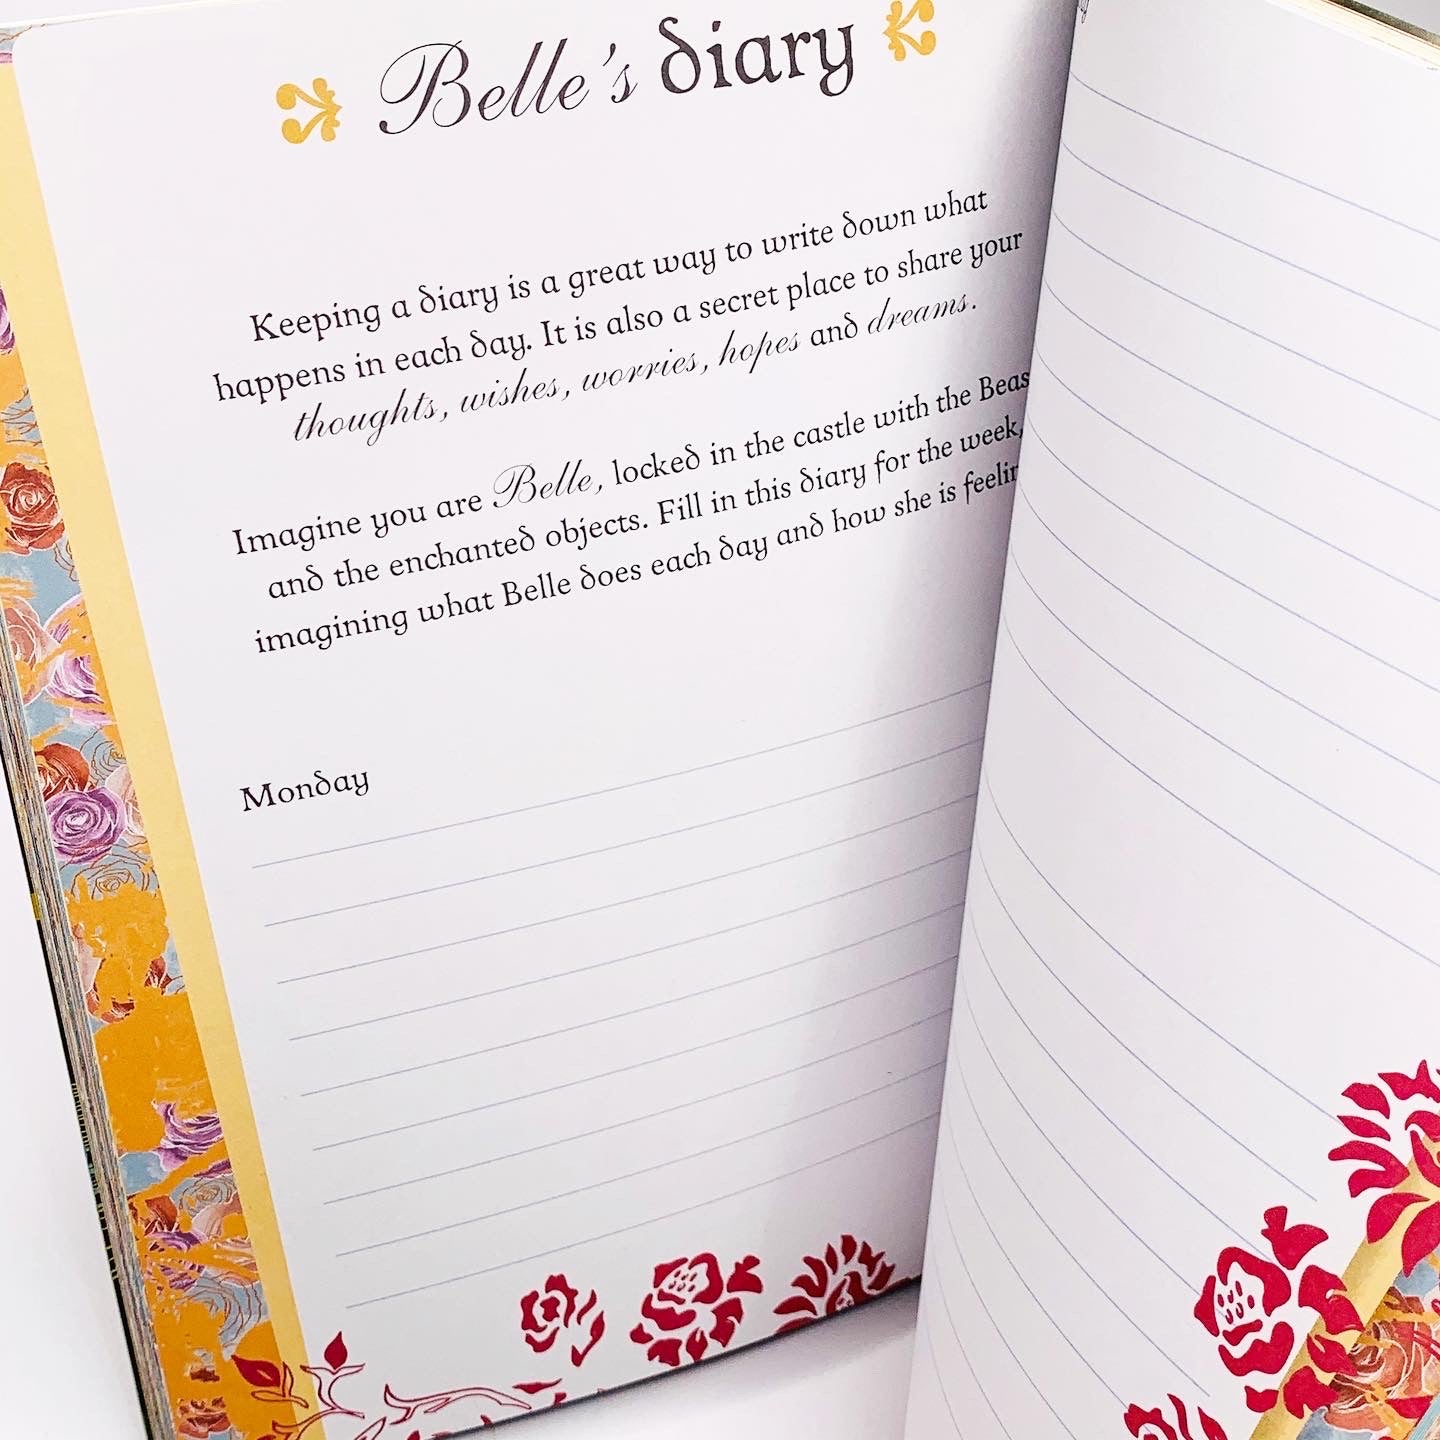 Belle's diary
Keeping a diary is a great way to write down what
happens in each day. It is also a secret place to share your
thoughts, wishes, worries, hopes and dreams.
Imagine you are Belle, locked in the castle with the Beas
and the enchanted objects. Fill in this diary for the week,
imagining what Belle does each day and how she is feelin
Monday